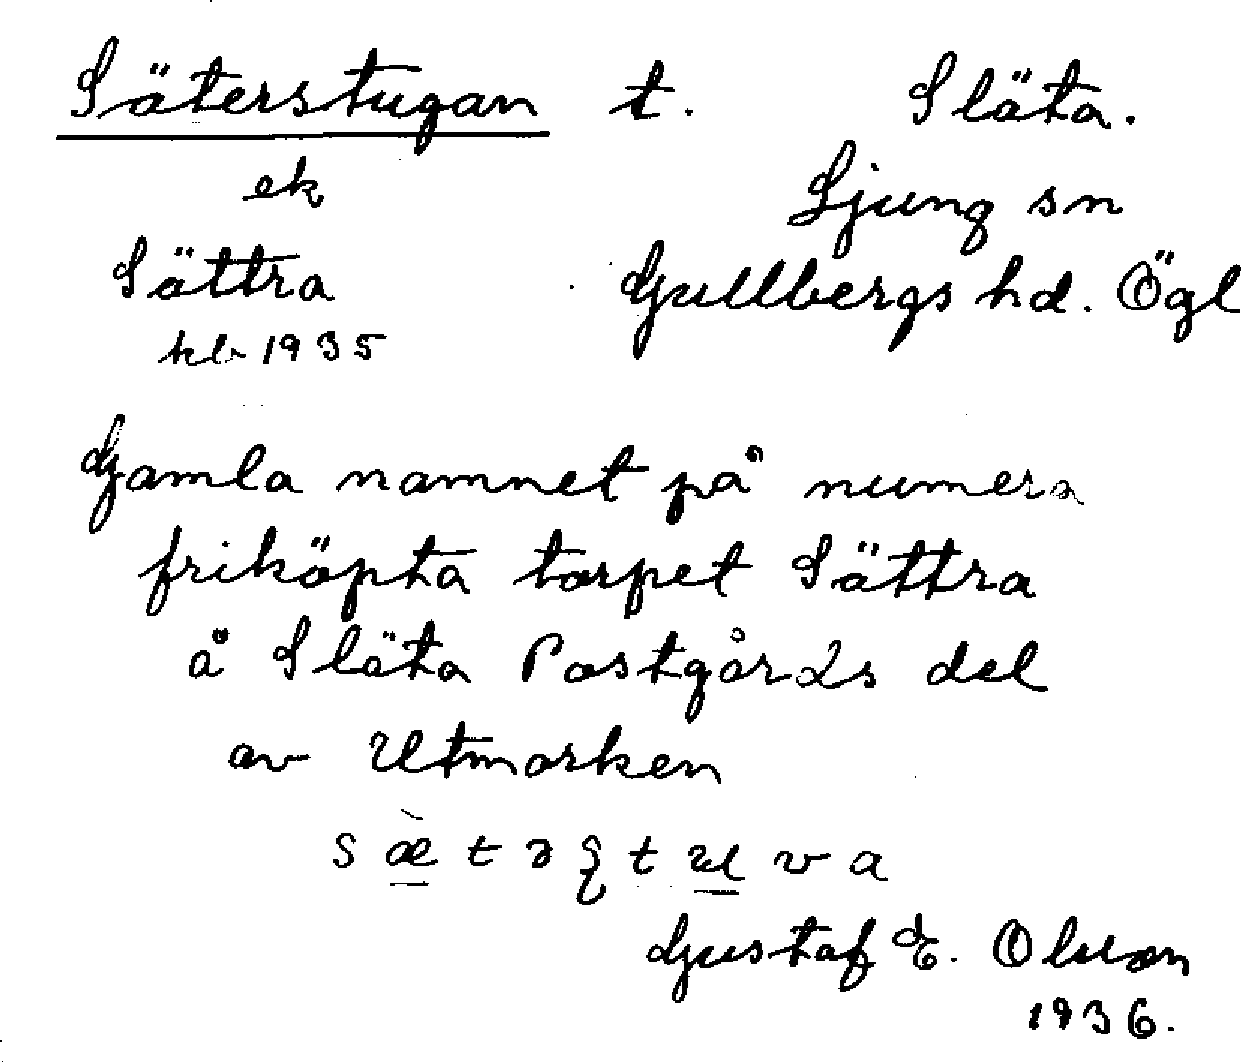 Säterstugan t. Släta.
ek Ljung sn
Sättra Gullbergs hd. Ögl
kb 1935
Gamla namnet på numera
friköpta torpet Sättra
å Släta Postgårds del
av Utmarken
Gustaf E. Olsson
1936.